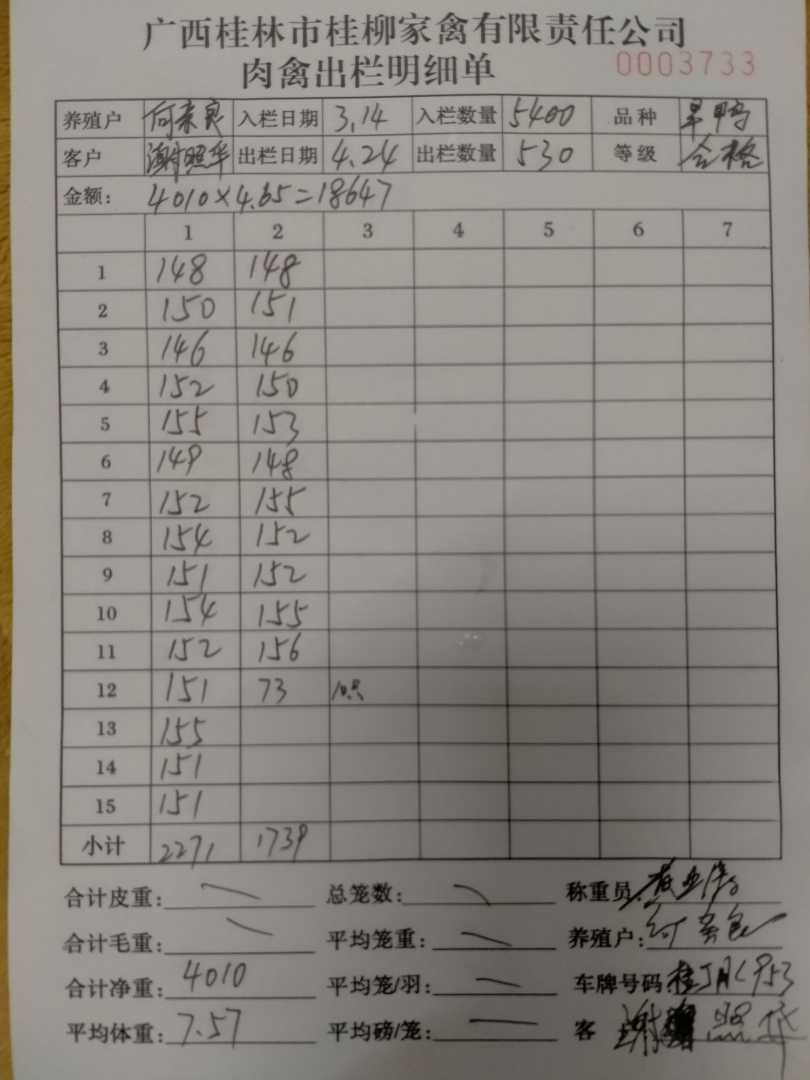 广西桂林市桂柳家禽有限责任公司
肉禽出栏明细单 0003733
养殖户 何素良 入栏日期 3.14 入栏数量 5400 品种 旱鸭
客户 谢照华 出栏日期 4.24 出栏数量 530 等级 合格
金额: 4010×4.65=18647
1 2 3 4 5 6 7
1 148 148
2 150 151
3 146 146
4 152 150
5 155 153
6 149 148
7 152 155
8 154 152
9 151 152
10 154 155
11 152 156
12 151 73 10只
13 155
14 151
15 151
小计 2271 1739
合计皮重: 总笼数: 称重员
合计毛重: 平均笼重: 养殖户:何
合计净重: 4010 平均笼/羽: 车牌号码
平均体重: 7.57 平均磅/笼: 客 谢照华